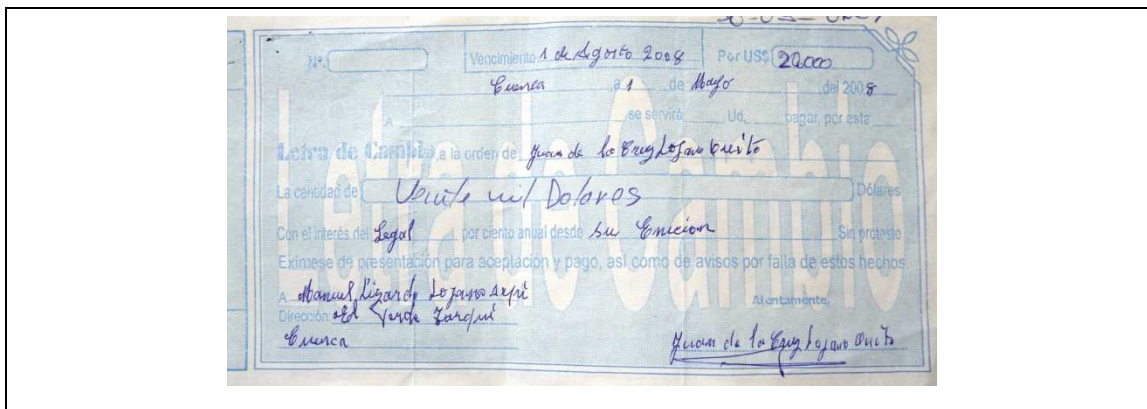 Nº. Vencimiento 1 de Agosto 2008 Por US$ 20.000
Cuenca a 1 de Mayo del 2008
A se servirá Ud. pagar, por esta
Letra de Cambio, a la orden de Juan de la Cruz Lozano
La cantidad de Veinte mil Dolares Dólares
Con el interés del Legal por ciento anual desde su Emicion Sin protesto
Exímese de presentación para aceptación y pago, así como de avisos por falla de estos hechos.
A Manuel Lizardo Lozano
Atentamente,
Dirección Tarqui
Cuenca Juan de la Cruz Lozano
Letra de Cambio